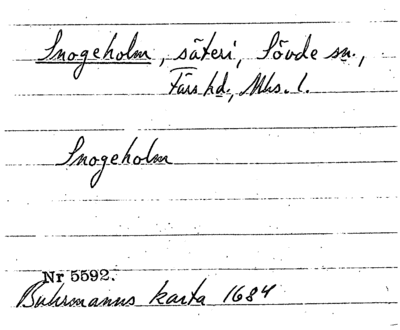 Snogeholm, säteri, Sövde sn.,
Färs hd., Mhs. l.
Snogeholm
Nr 5592.
Buhrmanns karta 1684